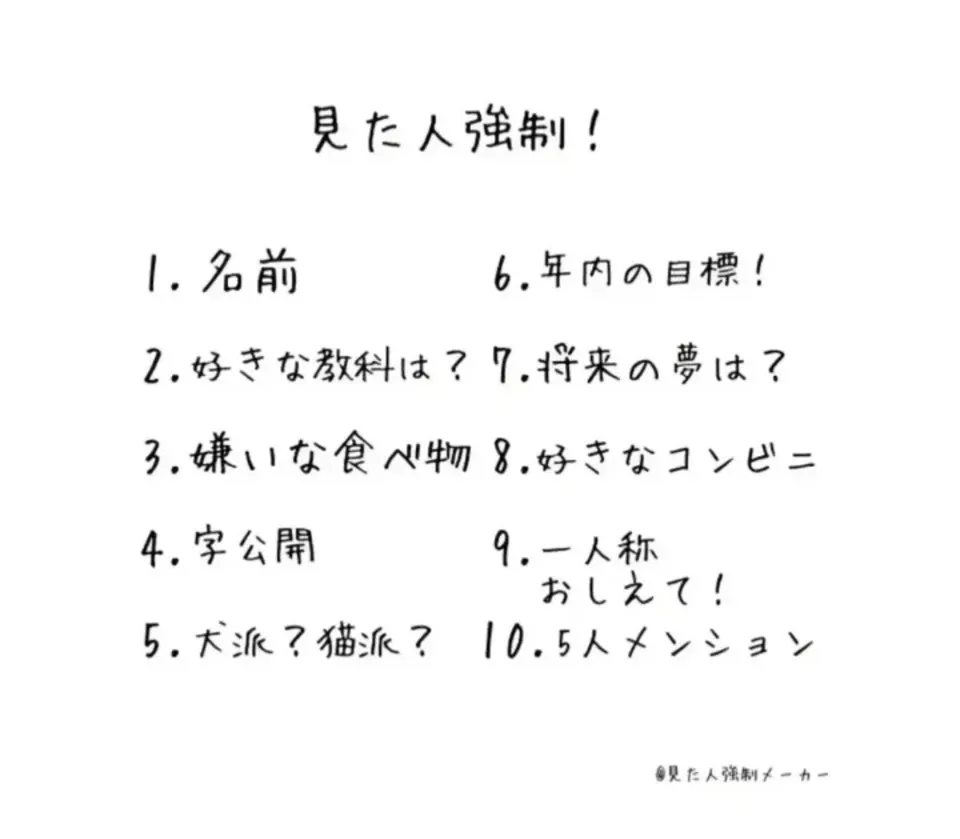 見た人強制!
1. 名前
2. 好きな教科は?
3. 嫌いな食べ物
4. 字公開
5. 犬派?猫派?
6. 年内の目標!
7. 将来の夢は?
8. 好きなコンビニ
9. 一人称
おしえて!
10. 5人メンション
@見た人強制メーカー